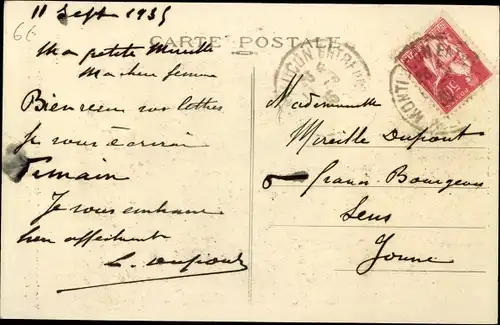 11 Sept 1935
66
CARTE POSTALE
Ma petite Mireille
Ma chère femme
Bien reçu vos lettres
Je vous écrirai
Demain
Je vous embrasse
bien affectueusement
L. Dupont
MONTLUÇON ENTREPÔT
Mademoiselle
Mireille Dupont
Grande Bourgeois
Sens
Yonne